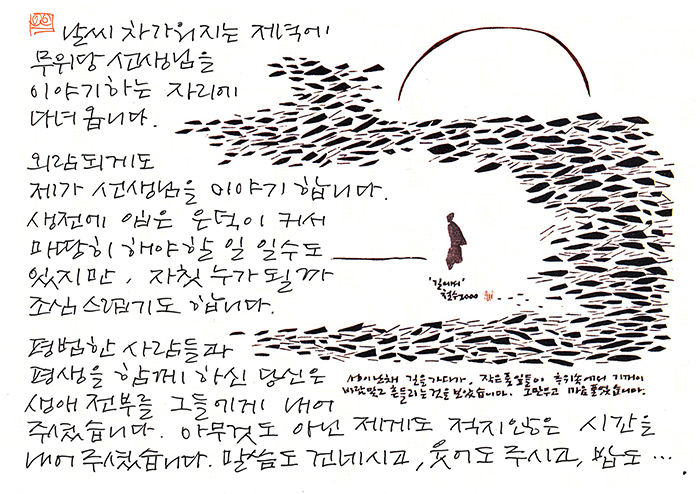 날씨 차가워지는 저녁에
무위당 선생님을
이야기하는 자리에
다녀 옵니다.
외람되게도
제가 선생님을 이야기 합니다.
생전에 입은 은덕이 커서
마땅히 해야할 일 일수도
있지만, 자칫 누가 될까
조심스럽기도 합니다.
'길에서'
철수 2000
평범한 사람들과
평생을 함께 하신 당신은
생애 전부를 그들에게 내어
주셨습니다. 아무것도 아닌 제게도 적지않은 시간을
내어 주셨습니다. 말씀도 건네시고, 웃어도 주시고, 밥도 …
성이난채 길을가다가, 작은풀잎들이 추위속에서 기꺼이
바람맞고 흔들리는것을 보았습니다. 그만두고 마음풀었습니다.